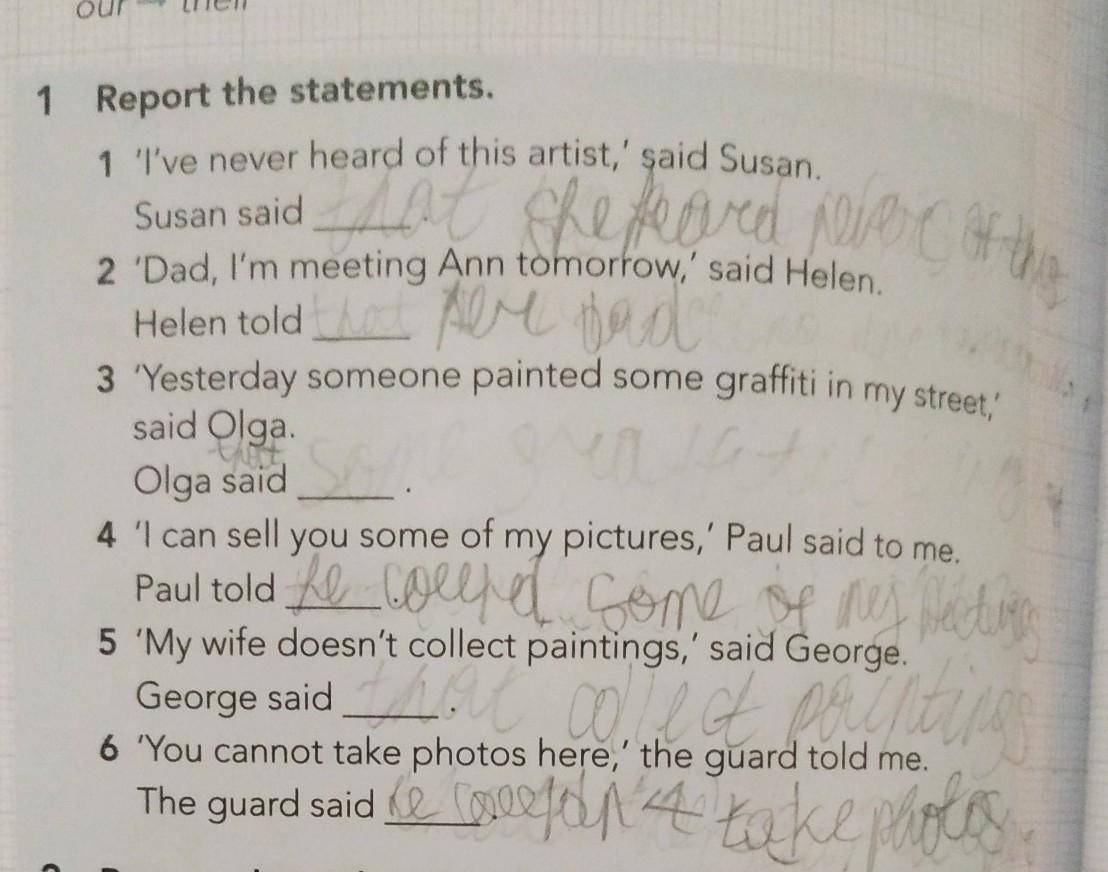 our → their
1 Report the statements.
1 'I've never heard of this artist,' said Susan.
Susan said ______. that she heard never of this
2 'Dad, I'm meeting Ann tomorrow,' said Helen.
Helen told ______ that here Dad
3 'Yesterday someone painted some graffiti in my street,'
said Olga.
that
Olga said ______. some
4 'I can sell you some of my pictures,' Paul said to me.
Paul told ______. he some of my
5 'My wife doesn't collect paintings,' said George.
George said ______. that collect paintings
6 'You cannot take photos here,' the guard told me.
The guard said ______. he take photos